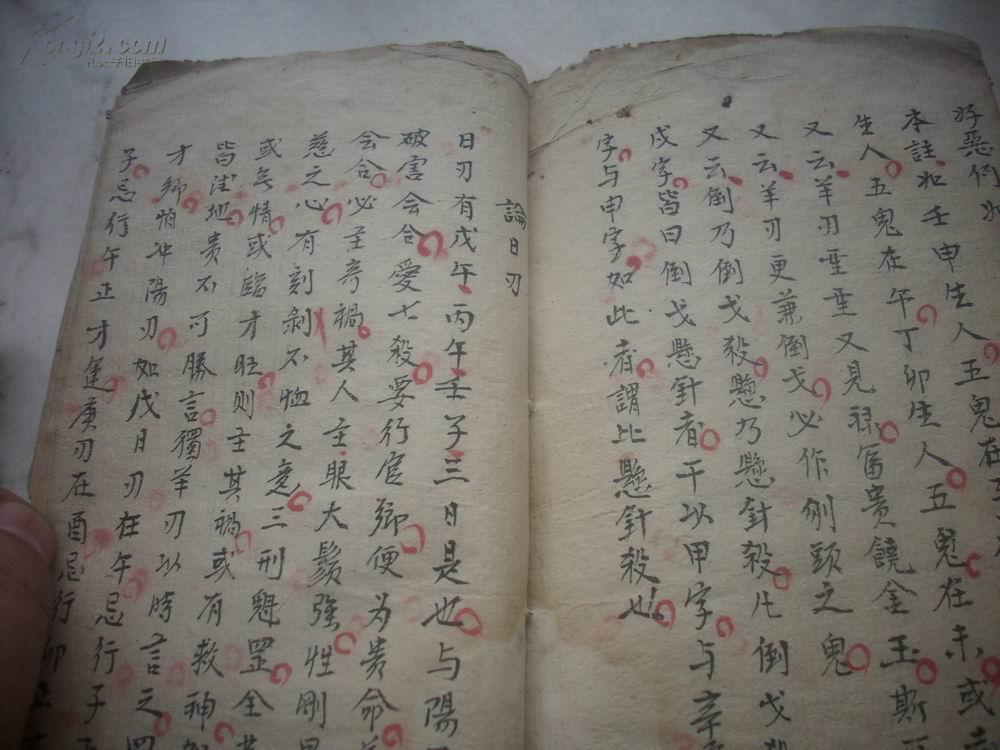 好惡例如
本註如壬申生人五鬼在
生人五鬼在午丁卯生人五鬼在未或
又云羊刃重重又見祿富貴饒金玉斯
又云羊刃更兼倒戈必作刎頭之鬼
又云倒乃倒戈殺懸乃懸針殺凡倒戈
戊字皆曰倒戈懸針者干以甲字与辛
字与申字如此者謂比懸針殺也
論日刃
日刃有戊午丙午壬子三日是也与陽
破害会合愛七殺要行官鄉便为貴命
会合必主竒禍其人主眼大鬚強性剛
慈之心有刻剝不恤之意三刑魁罡全
或無情或臨才旺则主其禍或有救神
皆法地貴不可勝言獨羊刃以時言之
才鄉怕冲陽刃如戊日刃在午忌行子
子忌行午正才運庚刃在酉忌行卯正
kongfz.com